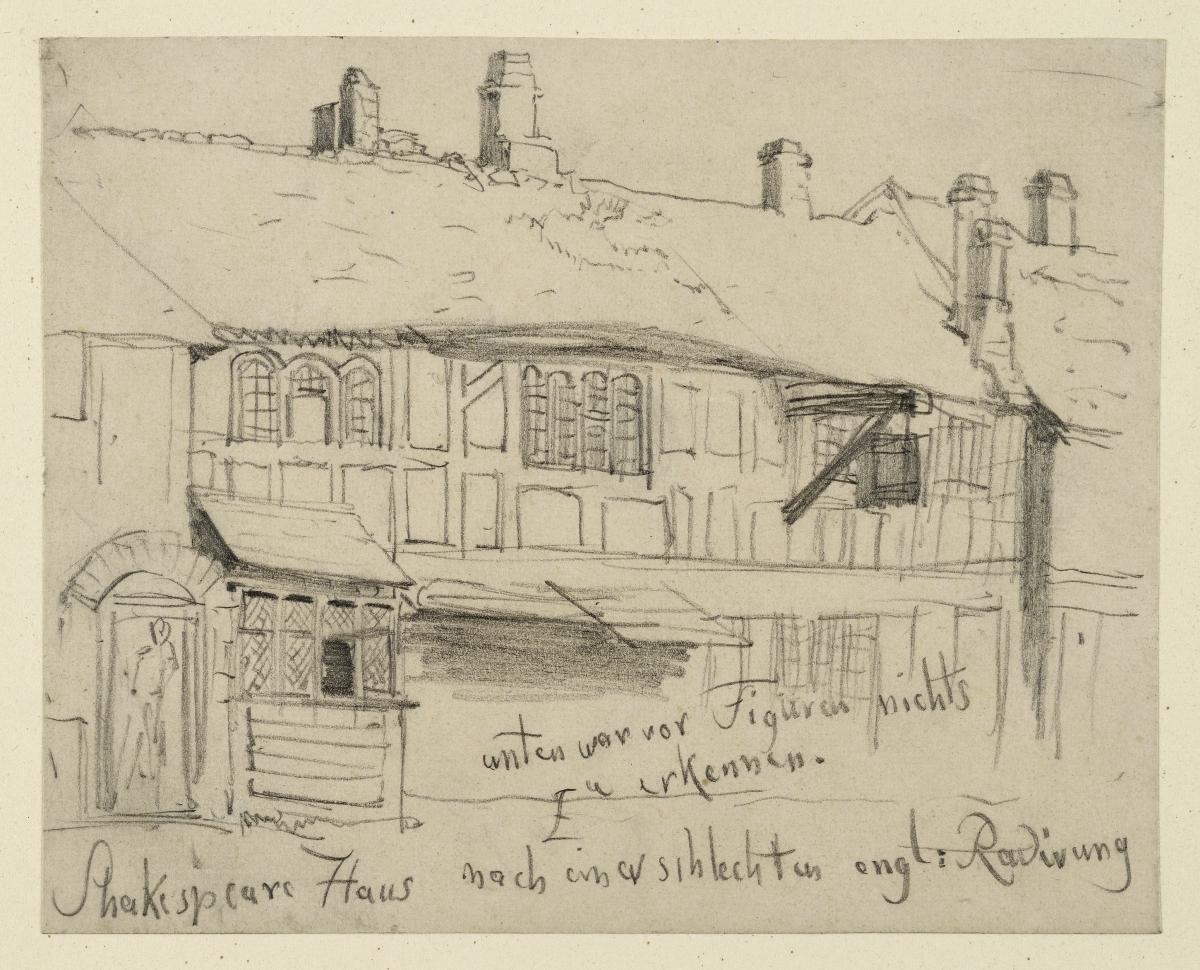 unten war vor Figuren nichts
zu erkennen.
Shakespeare Haus nach einer schlechten engl: Radirung